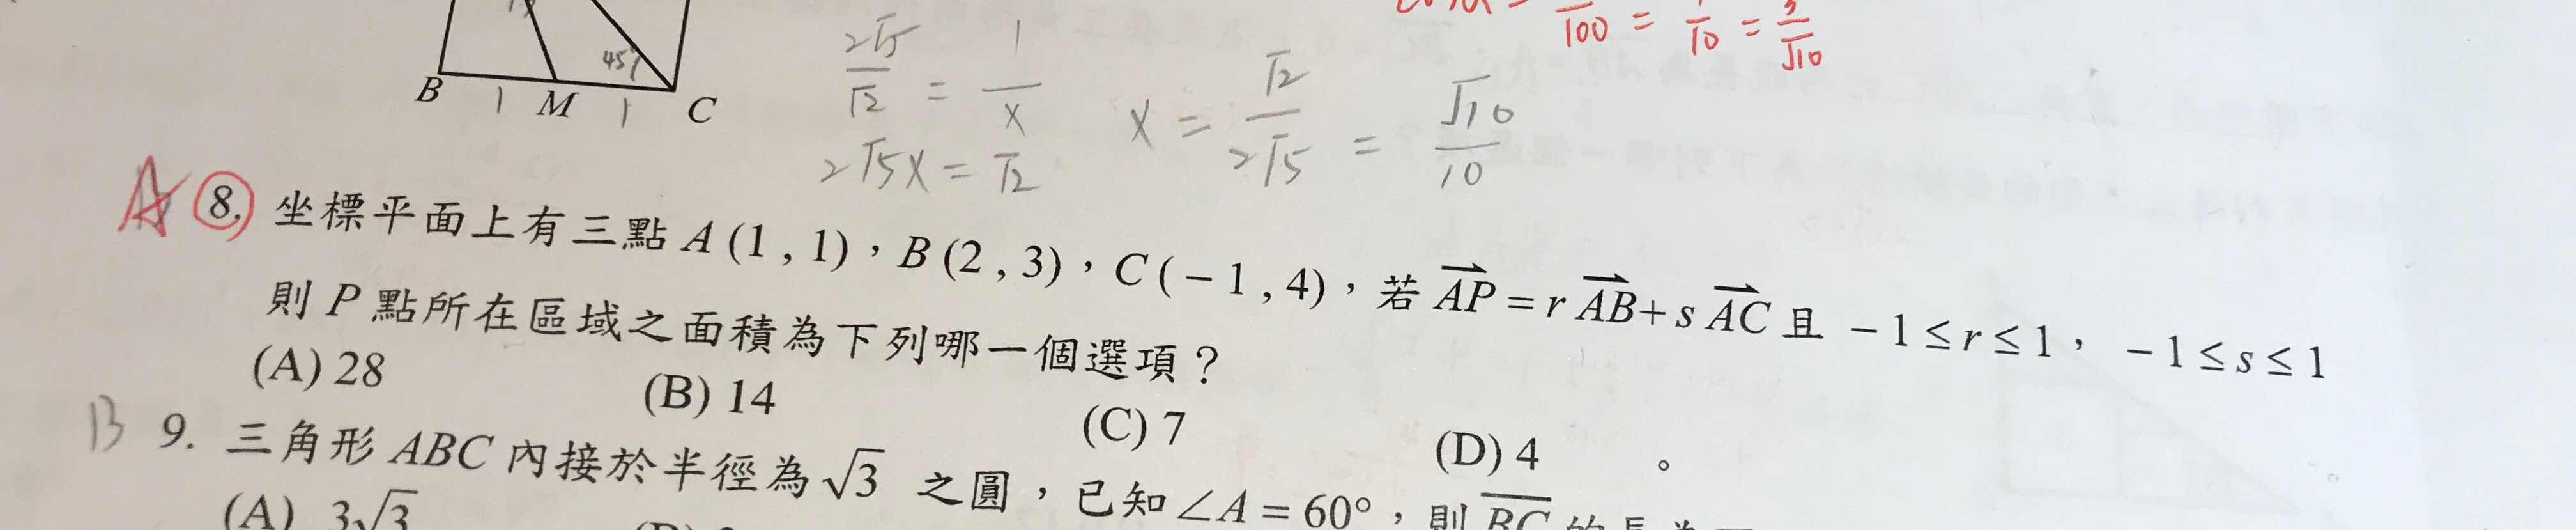 45°
B 1 M 1 C
2√5/√2 = 1/x
2√5x = √2
x = √2/2√5 = √10/10
√100 = √10 = 3/√10
A 8. 坐標平面上有三點 A(1, 1),B(2, 3),C(-1, 4),若 \overrightarrow{AP} = r \overrightarrow{AB} + s \overrightarrow{AC} 且 -1 ≤ r ≤ 1, -1 ≤ s ≤ 1
則 P 點所在區域之面積為下列哪一個選項?
(A) 28 (B) 14 (C) 7 (D) 4 。
B 9. 三角形 ABC 內接於半徑為 √3 之圓,已知 ∠A = 60°,則 \overline{BC} 的長為
(A) 3√3